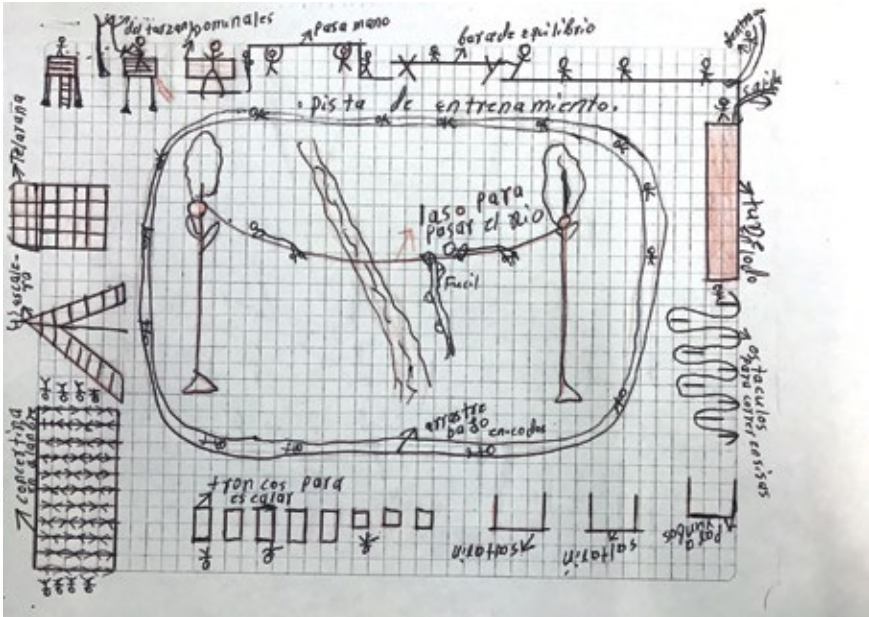 del tarzan
pominales
pasamano
bara de equilibrio
dentrada
salida
.pista de entrenamiento.
Telaraña
laso para
pasar el rio
Fucil
tunel lodo
ostaculos
para correr en sisas
arrastre
bajo
en codos
concertina
en alanbre
troncos para
escalar
saltarin
saltarin
para